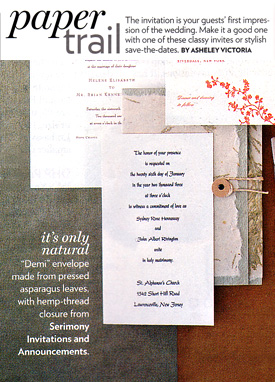 paper
trail
The invitation is your guests' first impres-
sion of the wedding. Make it a good one
with one of these classy invites or stylish
save-the-dates. BY ASHELEY VICTORIA
of their daughter
HELENE ELISABETH
TO
DR. BRIAN
Saturday, the
RIVERDALE, NEW YORK
Dinner and dancing
to follow
The honor of your presence
is requested on
the twenty sixth day of January
in the year two thousand three
at three o'clock
to witness a commitment of love as
Sydney Rose Hennessey
and
John Albert Rivington
unite
in holy matrimony.
St. Alphonse's Church
1342 Short Hill Road
Lawrenceville, New Jersey
it's only
natural
"Demi" envelope
made from pressed
asparagus leaves,
with hemp-thread
closure from
Serimony
Invitations and
Announcements.